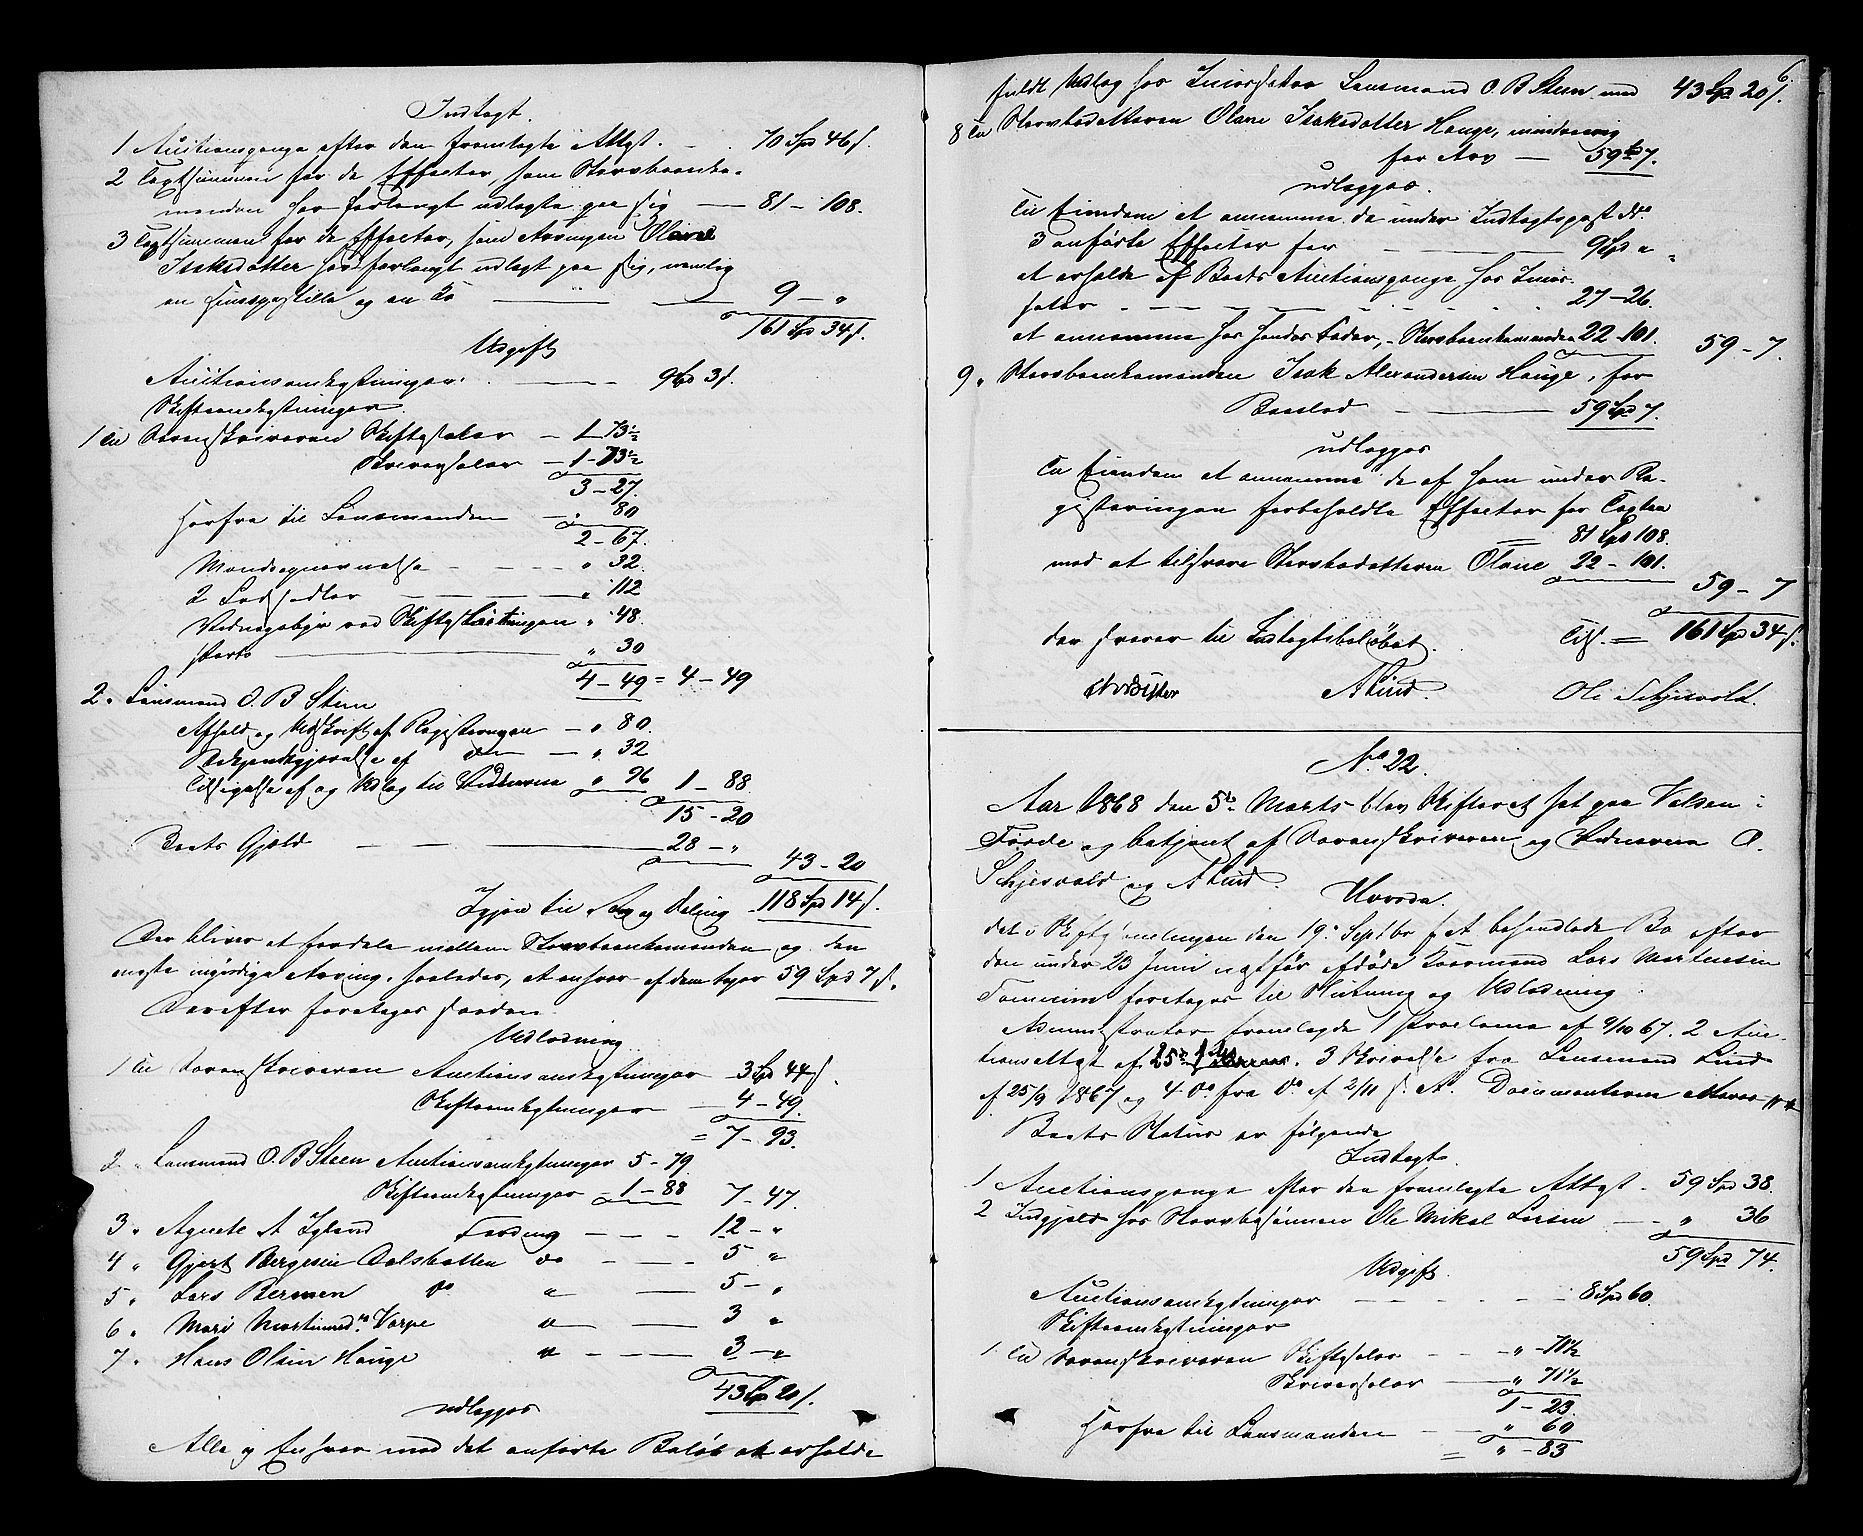 Indtægt.
1 Auctionspenge efter den fremlagte Attgt. - - 70 Spd 46 s.
2 Taxtsummen for de Effecter, som Stervboenke-
manden har forlangt udlagte paa sig — 81 - 108.
3 Taxtsummen for de Effecter, som Arvingen Olane
Isaksdatter har forlangt udlagt paa sig, nemlig
en Huuspostille og en Ko — 9 - "
161 Spd 34 s.
Udgift
Auctionsomkostninger. — 9 Spd 3 s.
Skifteomkostninger.
1 Til Sorenskriveren Skiftesalær — 1 - 73½
Skriversalær — 1 - 73½
3 - 27.
Herfra til Lensmanden — " 80
2 - 67.
Mændsopnævnelse - - - " 32.
2 Lodsedler — " 112
Vidnegebyr ved Skifteslutningen " 48.
Porto — " 30
4 - 49 = 4 - 49
2 " Lensmand O. B Steen
Afhold og Udskrift af Registeringen — " 80.
Bekjendtgjørelse af do — " 32
Tilsigelse af og Udlæg til Vidnerne " 96 1 - 88.
15 - 20
Boets Gjæld — 28 - "
43 - 20
Igjen til Arv og Deling 118 Spd 14 s.
Der bliver at fordele mellem Stervboenkemanden og den
eneste myndige Arving, saaledes, at enhver af dem tager 59 Spd 7 s.
Derefter foretages saadan
Udlodning
1 Til Sorenskriveren Auctionsomkostninger 3 Spd 44 s.
Skifteomkostninger — 4 - 49.
= 7 - 93.
2 " Lensmand O. B Steen Auctionsomkostninger 5 - 79
Skifteomkostninger 1 - 88 7 - 47.
3 " Agnete A Igland Fordring - - - 12 - "
4 " Gjert Bergesen Dalsbotten do - - - 5 "
5 " Lars Bermen do " — 5 - "
6 " Mari Martinusd.r Varpe " — 3 "
7 " Hans Olsen Hauge " — 3 - "
43 Sp 20 s.
udlægges
Alle og Enhver med det anførte Beløb at erholde
6.
fuldt Udlæg hos Incassator Lensmand O. B Steen med 43 Sp 20 s.
8 Til Stervbodatteren Olane Isaksdatter Hauge,
for Arv — 59 Sp 7.
udlægges.
Til Eiendom at annamme de under Indtægtspost No
3 anførte Effecter for — 9 Spd "
at erholde af Boets Auctionspenge hos Incas-
sator - - - 27 - 26.
at annamme hos hendes Fader, - Stervboenkemanden 22 - 101. 59 - 7.
9 " Stervboenkemanden Isak Alexandersen Hauge, for
Boeslod — 59 Spd 7.
udlægges
Til Eiendom at annamme de af ham under Re-
gisteringen forbeholdte Effecter for Taxten
81 Spd 108.
mod at tilsvare Stervbodatteren Olane 22 - 101.
59 - 7
der svarer til Indtægtsbeløbet. Tils. = 161 Spd 34 s.
A Lind Ole Schjesvold.
No 22.
Aar 1868 den 5te Marts blev Skifteret sat paa Vassen i
Førde og betjent af Sorenskriveren og Vidnerne O.
Schjesvold og A Lind.
Hvorda.
det i Skiftesamlingen den 19de Septbr f. A. behandlede Bo efter
den under 23 Juni næstfør afdøde Kaarmand Lars Mortensen
foretages til Slutning og Udlodning.
Administrator fremlagde 1 Proclama af 9/10 67. 2 Auc-
tionsattgt af 25de . 3 Skrivelse fra Lensmand Lind
af 25/9 1867 og 4 do fra do af 2/11 s. A. Documenterne
Boets Status er følgende
Indtægt.
1 Auctionspenge efter den fremlagte Attgt - 59 Spd 38.
2 Indgjeld hos Stervbosønnen Ole Mikal Larsen — " 36
59 Spd 74.
Udgift.
Auctionsomkostninger - - - 8 Spd 60.
Skifteomkostninger
1 Til Sorenskriveren Skiftesalær - - " - 71½
Skriversalær — " 71½
1 - 23.
Herfra til Lensmanden - - " 60
= " - 83